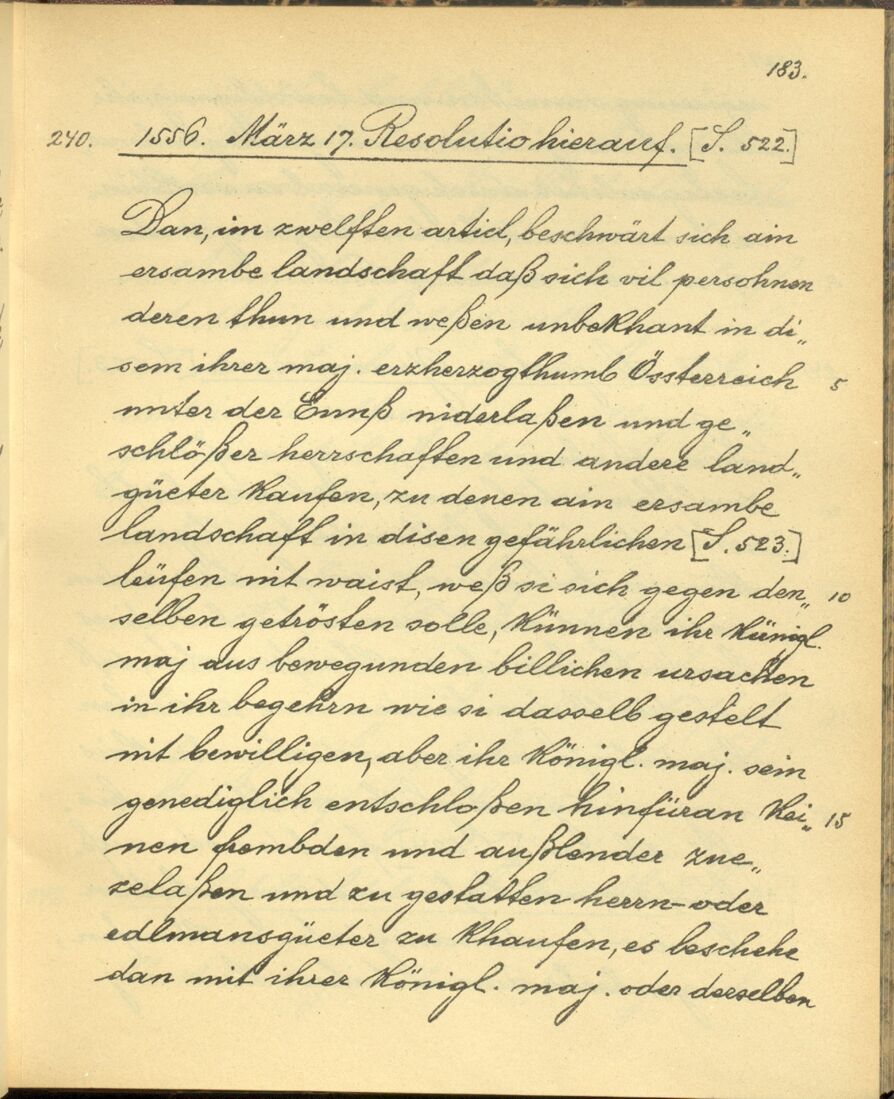 183.
240. 1556. März 17. Resolutio hierauf. [S. 522.]
Dan, im zwelften articl, beschwärt sich ain
ersambe landschaft daß sich vil persohnen
deren thun und weßen unbekhant in di„
sem ihrer maj. erzherzogthumb Össterreich 5
unter der Ennß niderlaßen und ge„
schlößer herrschaften und andere land„
güeter kaufen, zu denen ain ersambe
landschaft in disen gefährlichen [S. 523.]
leüfen nit waist, weß si sich gegen den„ 10
selben getrösten solle, künnen ihr künigl.
maj aus bewegunden billichen ursachen
in ihr begehrn wie si dasselb gestelt
nit bewilligen, aber ihr königl. maj. sein
genediglich entschloßen hinfüran kei„ 15
nen frembden und außlender zue„
zelaßen und zu gestatten herrn- oder
edlmansgüeter zu khaufen, es beschehe
dan mit ihrer königl. maj. oder derselben